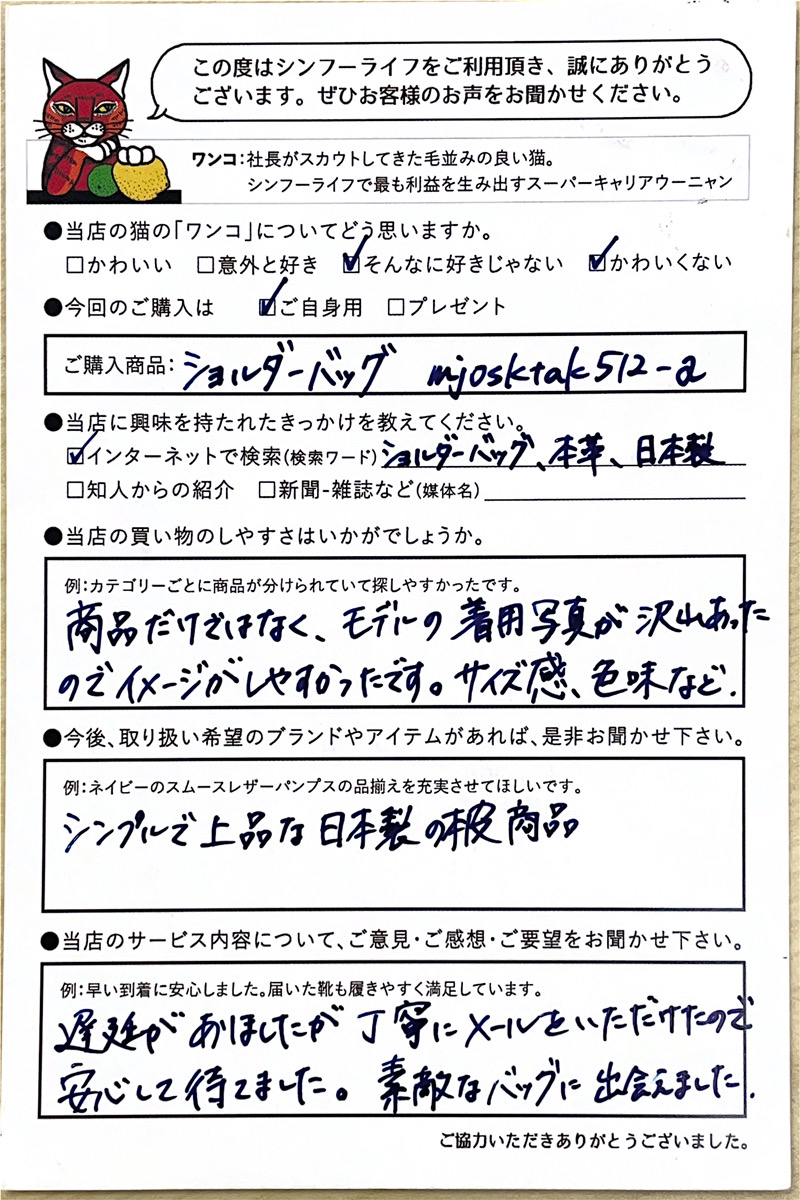 この度はシンフーライフをご利用頂き、誠にありがとう
ございます。ぜひお客様のお声をお聞かせください。
ワンコ:社長がスカウトしてきた毛並みの良い猫。
シンフーライフで最も利益を生み出すスーパーキャリアウーニャン
●当店の猫の「ワンコ」についてどう思いますか。
□かわいい □意外と好き ☑そんなに好きじゃない ☑かわいくない
●今回のご購入は ☑ご自身用 □プレゼント
ご購入商品: ショルダーバッグ mjosktak512-a
●当店に興味を持たれたきっかけを教えてください。
☑インターネットで検索(検索ワード) ショルダーバッグ、本革、日本製
□知人からの紹介 □新聞-雑誌など(媒体名)
●当店の買い物のしやすさはいかがでしょうか。
例:カテゴリーごとに商品が分けられていて探しやすかったです。
商品だけではなく、モデルの着用写真が沢山あった
のでイメージがしやすかったです。サイズ感、色味など.
●今後、取り扱い希望のブランドやアイテムがあれば、是非お聞かせ下さい。
例:ネイビーのスムースレザーパンプスの品揃えを充実させてほしいです。
シンプルで上品な日本製の本皮商品
●当店のサービス内容について、ご意見・ご感想・ご要望をお聞かせ下さい。
例:早い到着に安心しました。届いた靴も履きやすく満足しています。
遅延がありましたが丁寧にメールをいただけたので
安心して待てました。素敵なバッグに出会えました.
ご協力いただきありがとうございました。